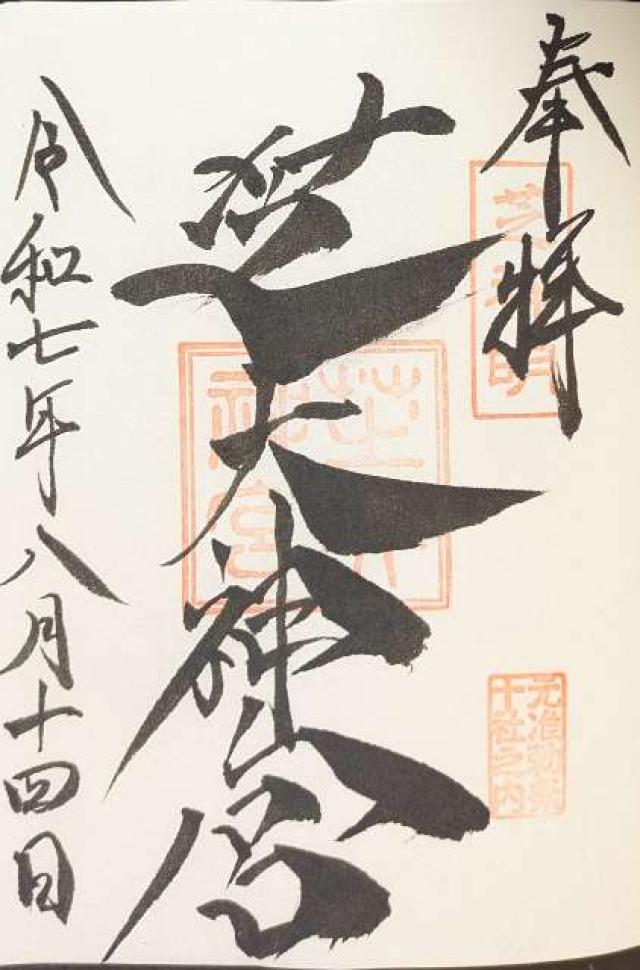 奉拝
芝神明
元准勅祭
十社之内
芝大神宮
芝大
神宮
令和七年八月十四日